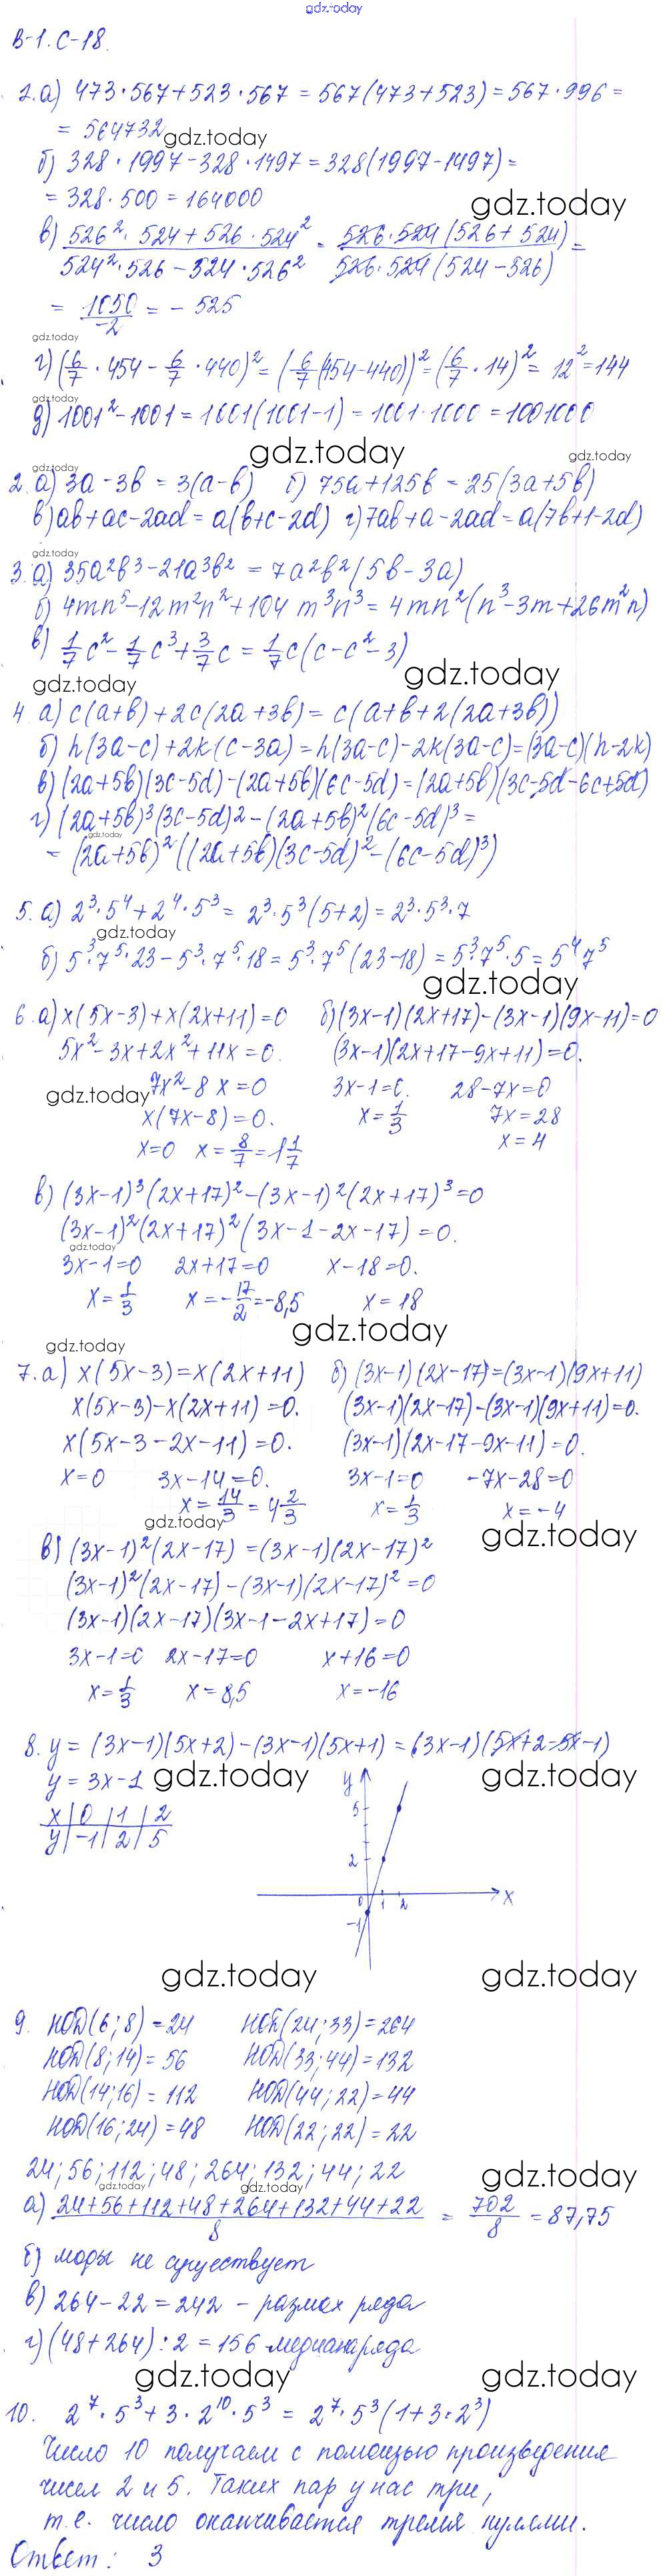 gdz.today
В-1. С-18.
2.а) 473·567+523·567 = 567(473+523) = 567·996 =
= 564732
gdz.today
б) 328·1997-328·1497 = 328(1997-1497) =
= 328·500 = 164000
gdz.today
в) 526²·524+526·524² / 524²·526-524·526² = 526·524(526+524) / 526·524(524-526) =
= 1050/-2 = -525
gdz.today
г) (6/7·454-6/7·440)² = (6/7(454-440))² = (6/7·14)² = 12² = 144
gdz.today
д) 1001²-1001 = 1001(1001-1) = 1001·1000 = 1001000
gdz.today
gdz.today
gdz.today
2. а) 3a-3b = 3(a-b) б) 75a+125b = 25(3a+5b)
в) ab+ac-2ad = a(b+c-2d) г) 7ab+a-2ad = a(7b+1-2d)
gdz.today
3. а) 35a²b³-21a³b² = 7a²b²(5b-3a)
б) 4mn⁵-12m²n²+104m³n³ = 4mn²(n³-3m+26m²n)
в) 1/7c²-1/7c³+3/7c = 1/7c(c-c²-3)
gdz.today
gdz.today
4. а) c(a+b)+2c(2a+3b) = c(a+b+2(2a+3b))
б) h(3a-c)+2k(c-3a) = h(3a-c)-2k(3a-c) = (3a-c)(h-2k)
в) (2a+5b)(3c-5d)-(2a+5b)(6c-5d) = (2a+5b)(3c-5d-6c+5d)
г) (2a+5b)³(3c-5d)²-(2a+5b)²(6c-5d)³ =
gdz.today
= (2a+5b)²((2a+5b)(3c-5d)²-(6c-5d)³)
5. а) 2³·5⁴+2⁴·5³ = 2³·5³(5+2) = 2³·5³·7
gdz.today
б) 5³·7⁵·23-5³·7⁵·18 = 5³·7⁵(23-18) = 5³·7⁵·5 = 5⁴7⁵
gdz.today
6. а) x(5x-3)+x(2x+11)=0 б) (3x-1)(2x+17)-(3x-1)(9x-11)=0
5x²-3x+2x²+11x=0. (3x-1)(2x+17-9x+11)=0.
gdz.today
7x²-8x=0 3x-1=0. 28-7x=0
x(7x-8)=0. x=1/3 7x=28
x=0 x=8/7=1 1/7 x=4
в) (3x-1)³(2x+17)²-(3x-1)²(2x+17)³=0
(3x-1)²(2x+17)²(3x-1-2x-17)=0.
gdz.today
3x-1=0 2x+17=0 x-18=0.
x=1/3 x=-17/2=-8,5 x=18
gdz.today
gdz.today
7. а) x(5x-3)=x(2x+11) б) (3x-1)(2x-17)=(3x-1)(9x+11)
x(5x-3)-x(2x+11)=0. (3x-1)(2x-17)-(3x-1)(9x+11)=0.
x(5x-3-2x-11)=0. (3x-1)(2x-17-9x-11)=0.
x=0 3x-14=0. 3x-1=0 -7x-28=0
x=14/3=4 2/3 x=1/3 x=-4
gdz.today
gdz.today
в) (3x-1)²(2x-17)=(3x-1)(2x-17)²
(3x-1)²(2x-17)-(3x-1)(2x-17)²=0
(3x-1)(2x-17)(3x-1-2x+17)=0
3x-1=0 2x-17=0 x+16=0
x=1/3 x=8,5 x=-16
8. y=(3x-1)(5x+2)-(3x-1)(5x+1)=(3x-1)(5x+2-5x-1)
y=3x-1
gdz.today
gdz.today
x|0|1|2
y|-1|2|5
y
5
2
0 1 2 x
-1
gdz.today
gdz.today
9. НОД(6;8)=24 НОК(24;33)=264
НОД(8;14)=56 НОД(33;44)=132
НОД(14;16)=112 НОД(44;22)=44
НОД(16;24)=48 НОД(22;22)=22
24;56;112;48;264;132;44;22
gdz.today
gdz.today
gdz.today
а) 24+56+112+48+264+132+44+22 / 8 = 702/8 = 87,75
б) моды не существует
в) 264-22=242 - размах ряда
г) (48+264):2=156 медиана ряда
gdz.today
gdz.today
10. 2⁷·5³+3·2¹⁰·5³ = 2⁷·5³(1+3·2³)
Число 10 получаем с помощью произведения
чисел 2 и 5. Таких пар у нас три,
т.е. число оканчивается тремя нулями.
Ответ: 3